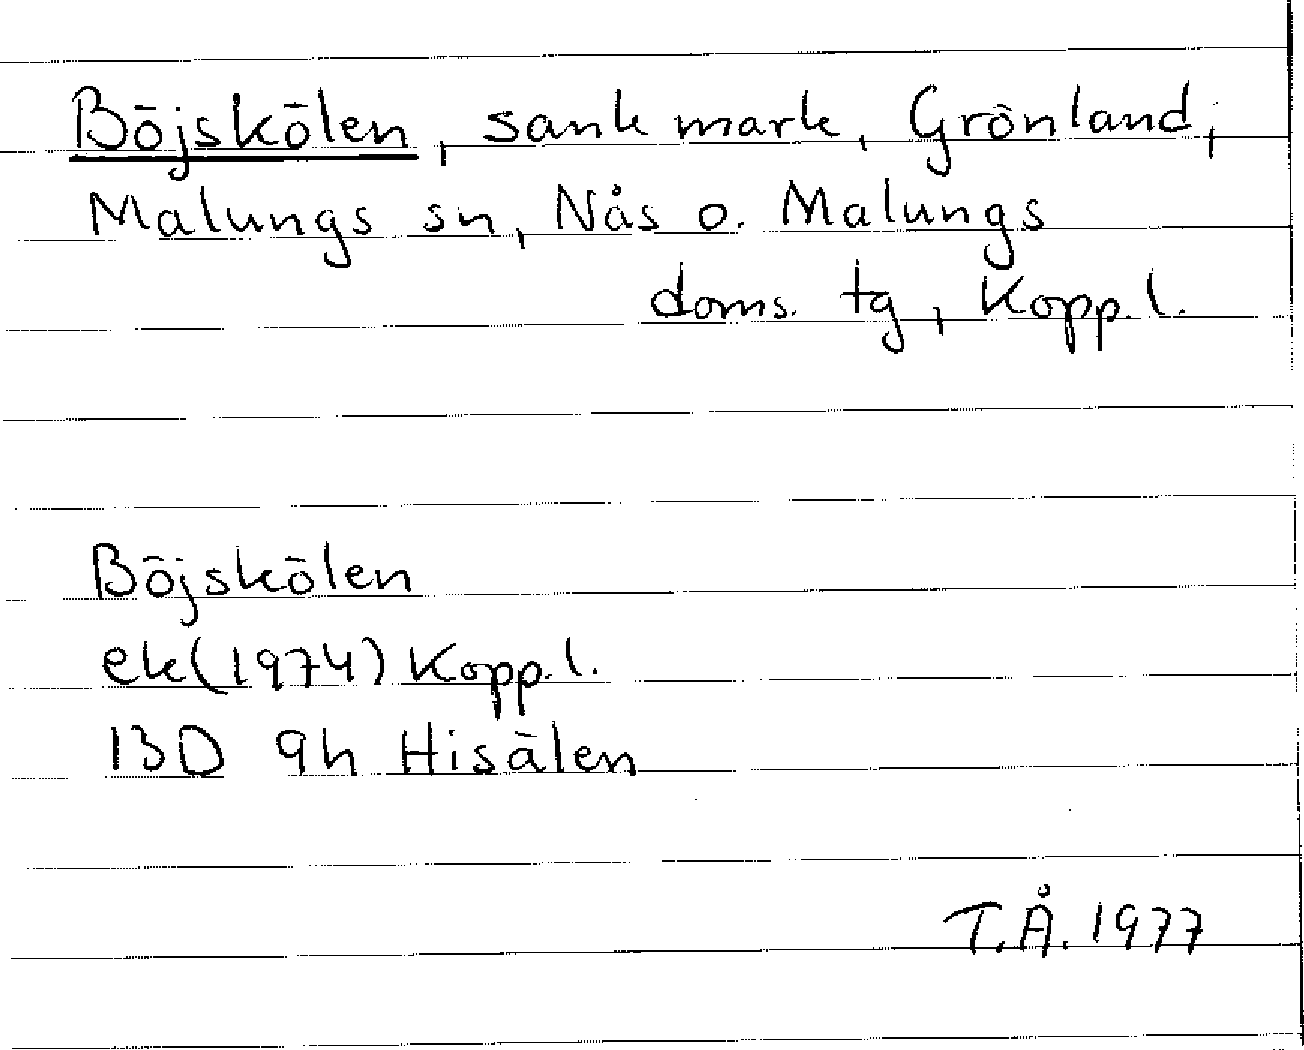 Böjskölen, sank mark, Grönland,
Malungs sn, Nås o. Malungs
doms. tg, Kopp. l.
Böjskölen
ek(1974) Kopp. l.
13D 9h Hisälen
T.Å. 1977